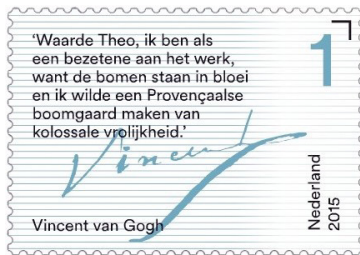 ‘Waarde Theo, ik ben als
een bezetene aan het werk,
want de bomen staan in bloei
en ik wilde een Provençaalse
boomgaard maken van
kolossale vrolijkheid.’
1
Vincent
Vincent van Gogh
Nederland
2015